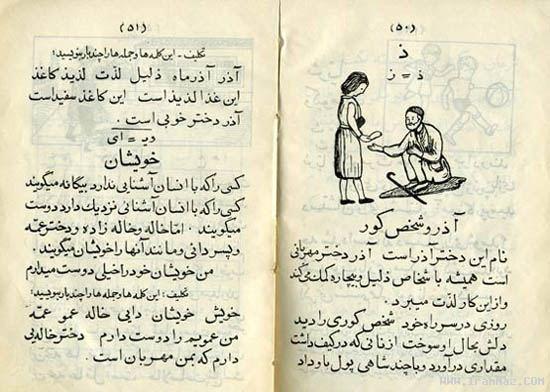 (۵۰)
ذ
ذ = ز
آذر و شخص کور
نام این دختر آذر است آذر دختر مهربانی
است همیشه با شخاص ذلیل و بیچاره کمک می کند
و از این کار لذت میبرد.
روزی در سر راه خود شخص کوری را دید
دلش بحال او سوخت از نانی که در کیف داشت
مقداری در آورد و با چند شاهی پول با و داد
(۵۱)
تکلیف: این کلمه ها و جمله ها را چند بار بنویسید:
آذر آذر ماه ذلیل لذت لذیذ کاغذ
این غذا لذیذ است این کاغذ سفید است
آذر دختر خوبی است.
وی = ای
خویشان
کسی را که با انسان آشنایی ندارد بیگانه میگویند
کسی را که با انسان آشنائی نزدیک دارد دوست
میگویند. اما خاله و خاله زاده و دختر عمه
و پسر دائی و مانند آنها را خویشان میگویند.
من خویشان خود را خیلی دوست میدارم
تکلیف: این کلمه ها و جمله ها را چند بار بنویسید:
خویش خویشان دایی خاله عمو عمه
من عمویم را دوست دارم دختر خاله یی
دارم که بمن مهربان است.
www.IranNaz.com